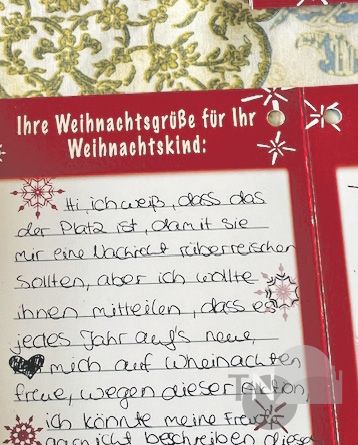 Ihre Weihnachtsgrüße für Ihr
Weihnachtskind:
Hi, ich weiß, dass das
der Platz ist, damit Sie
mir eine Nachricht rüberreischen
sollten, aber ich wollte
ihnen mitteilen, dass es
jedes Jahr auf's neue
mich auf Wheinachten
freue, wegen dieser Aktion,
ich könnte meine Freude
garnicht beschreiben diese